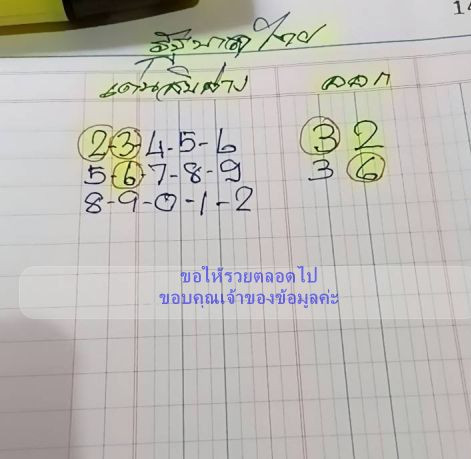 14
เด่นสิบล่าง ออก
2-3-4-5-6 3 2
5-6-7-8-9 3 6
8-9-0-1-2
ขอให้รวยตลอดไป
ขอบคุณเจ้าของข้อมูลค่ะ